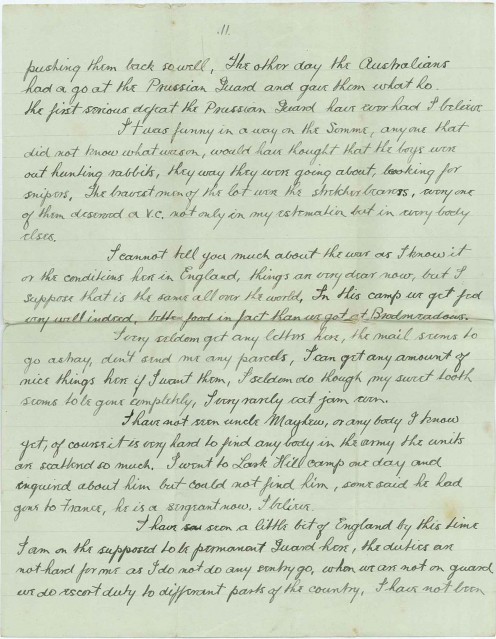 11.
pushing them back so well, The other day the Australians
had a go at the Prussian Guard and gave them what ho.
the first serious defeat the Prussian Guard have ever had I believe
It was funny in a way on the Somme, any one that
did not know what was on, would have thought that the boys were
out hunting rabbits, they way they were going about, looking for
snipers, The bravest men of the lot were the stretcher bearers, every one
of them deserved a V.C. not only in my estemation but in every body
elses.
I cannot tell you much about the war as I know it
or the conditions here in England, things are very dear now, but I
suppose that is the same all over the world, In this camp we get fed
very well indeed, better food in fact than we got at Broadmeadows.
I very seldom get any letters here, the mail seems to
go astray, don't send me any parcels, I can get any amount of
nice things here if I want them, I seldom do though my sweet tooth
seems to be gone completely, I very rarely eat jam even.
I have not seen uncle Mayhew, or any body I know
yet, of course it is very hard to find any body in the army the units
are scattered so much. I went to Lark Hill camp one day and
enquired about him but could not find him, some said he had
gone to France, he is a sergeant now, I believe.
I have seen a little bit of England by this time
I am on the supposed to be permanent Guard here, the duties are
not hard for me as I do not do any sentry go, when we are not on guard
we do escort duty to different parts of the country, I have not been